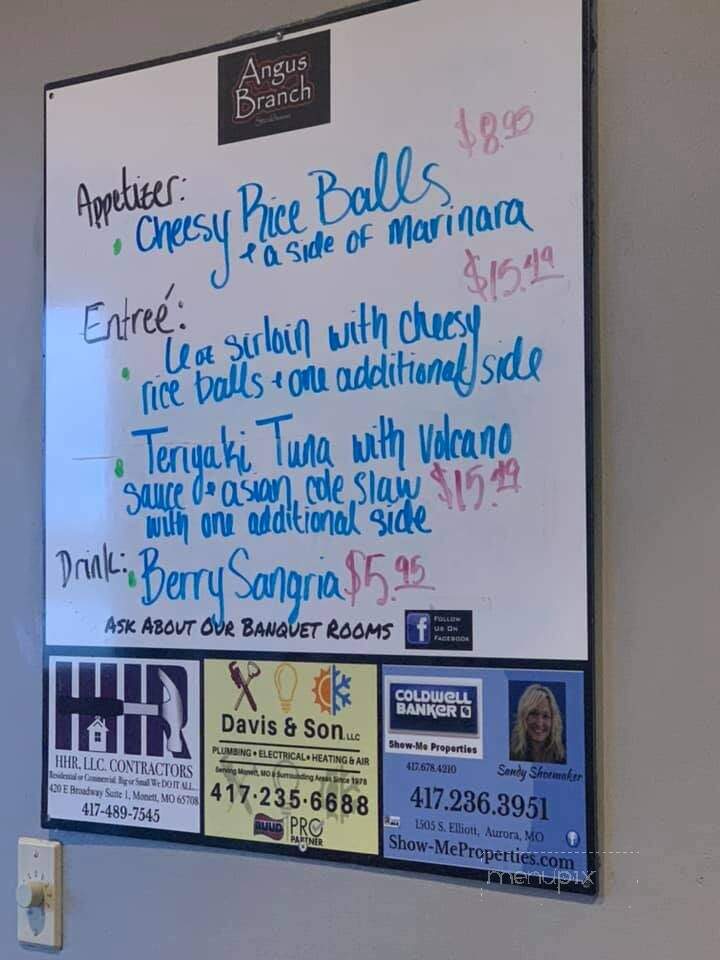 Angus
Branch
Appetizer: $8.95
• Cheesy Rice Balls
+ a side of marinara
Entreé: $15.49
• 6 oz sirloin with cheesy
rice balls + one additional side
• Teriyaki Tuna with Volcano
sauce & asian cole slaw $15.49
with one additional side
Drink: • Berry Sangria $5.95
ASK ABOUT OUR BANQUET ROOMS
FOLLOW
US ON
FACEBOOK
HHR
HHR, LLC. CONTRACTORS
Residential or Commercial. Big or Small We DO IT ALL.
420 E Broadway Suite 1, Monett, MO 65708
417-489-7545
Davis & Son, LLC
PLUMBING • ELECTRICAL • HEATING & AIR
Serving Monett, MO & Surrounding Areas Since 1978
417•235•6688
RUUD PRO
PARTNER
COLDWELL
BANKER
Show-Me Properties
417.678.4210
Sandy Shoemaker
417.236.3951
1505 S. Elliott, Aurora, MO
Show-MeProperties.com
menupix